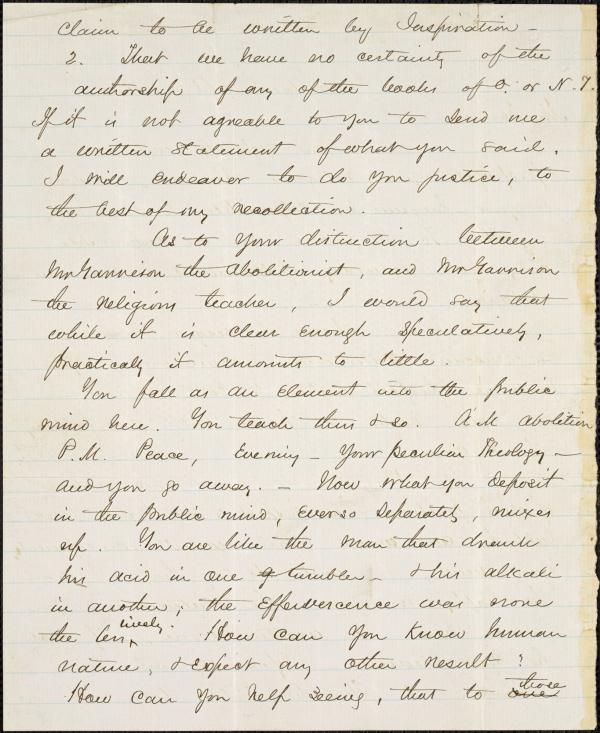 claim to be written by Inspiration -
2. That we have no certainty of the
authorship of any of the books of O. or N. T.
If it is not agreeable to you to send me
a written statement of what you said,
I will endeavor to do you justice, to
the best of my recollection.
As to your distinction between
Mr Garrison the abolitionist, and Mr Garrison
the religious teacher, I would say that
while it is clear enough speculatively,
practically it amounts to little.
You fall as an element into the public
mind here. You teach thus & so. A.M abolition
P.M. Peace, Evening - Your peculiar Theology -
and you go away. - Now what you deposit
in the public mind, ever so separately, mixes
up. You are like the man that drank
his acid in one tumbler - & his alkali
in another; the effervescence was none
the less lively. How can you know human
nature, & expect any other result?
How can you help seeing, that to one those